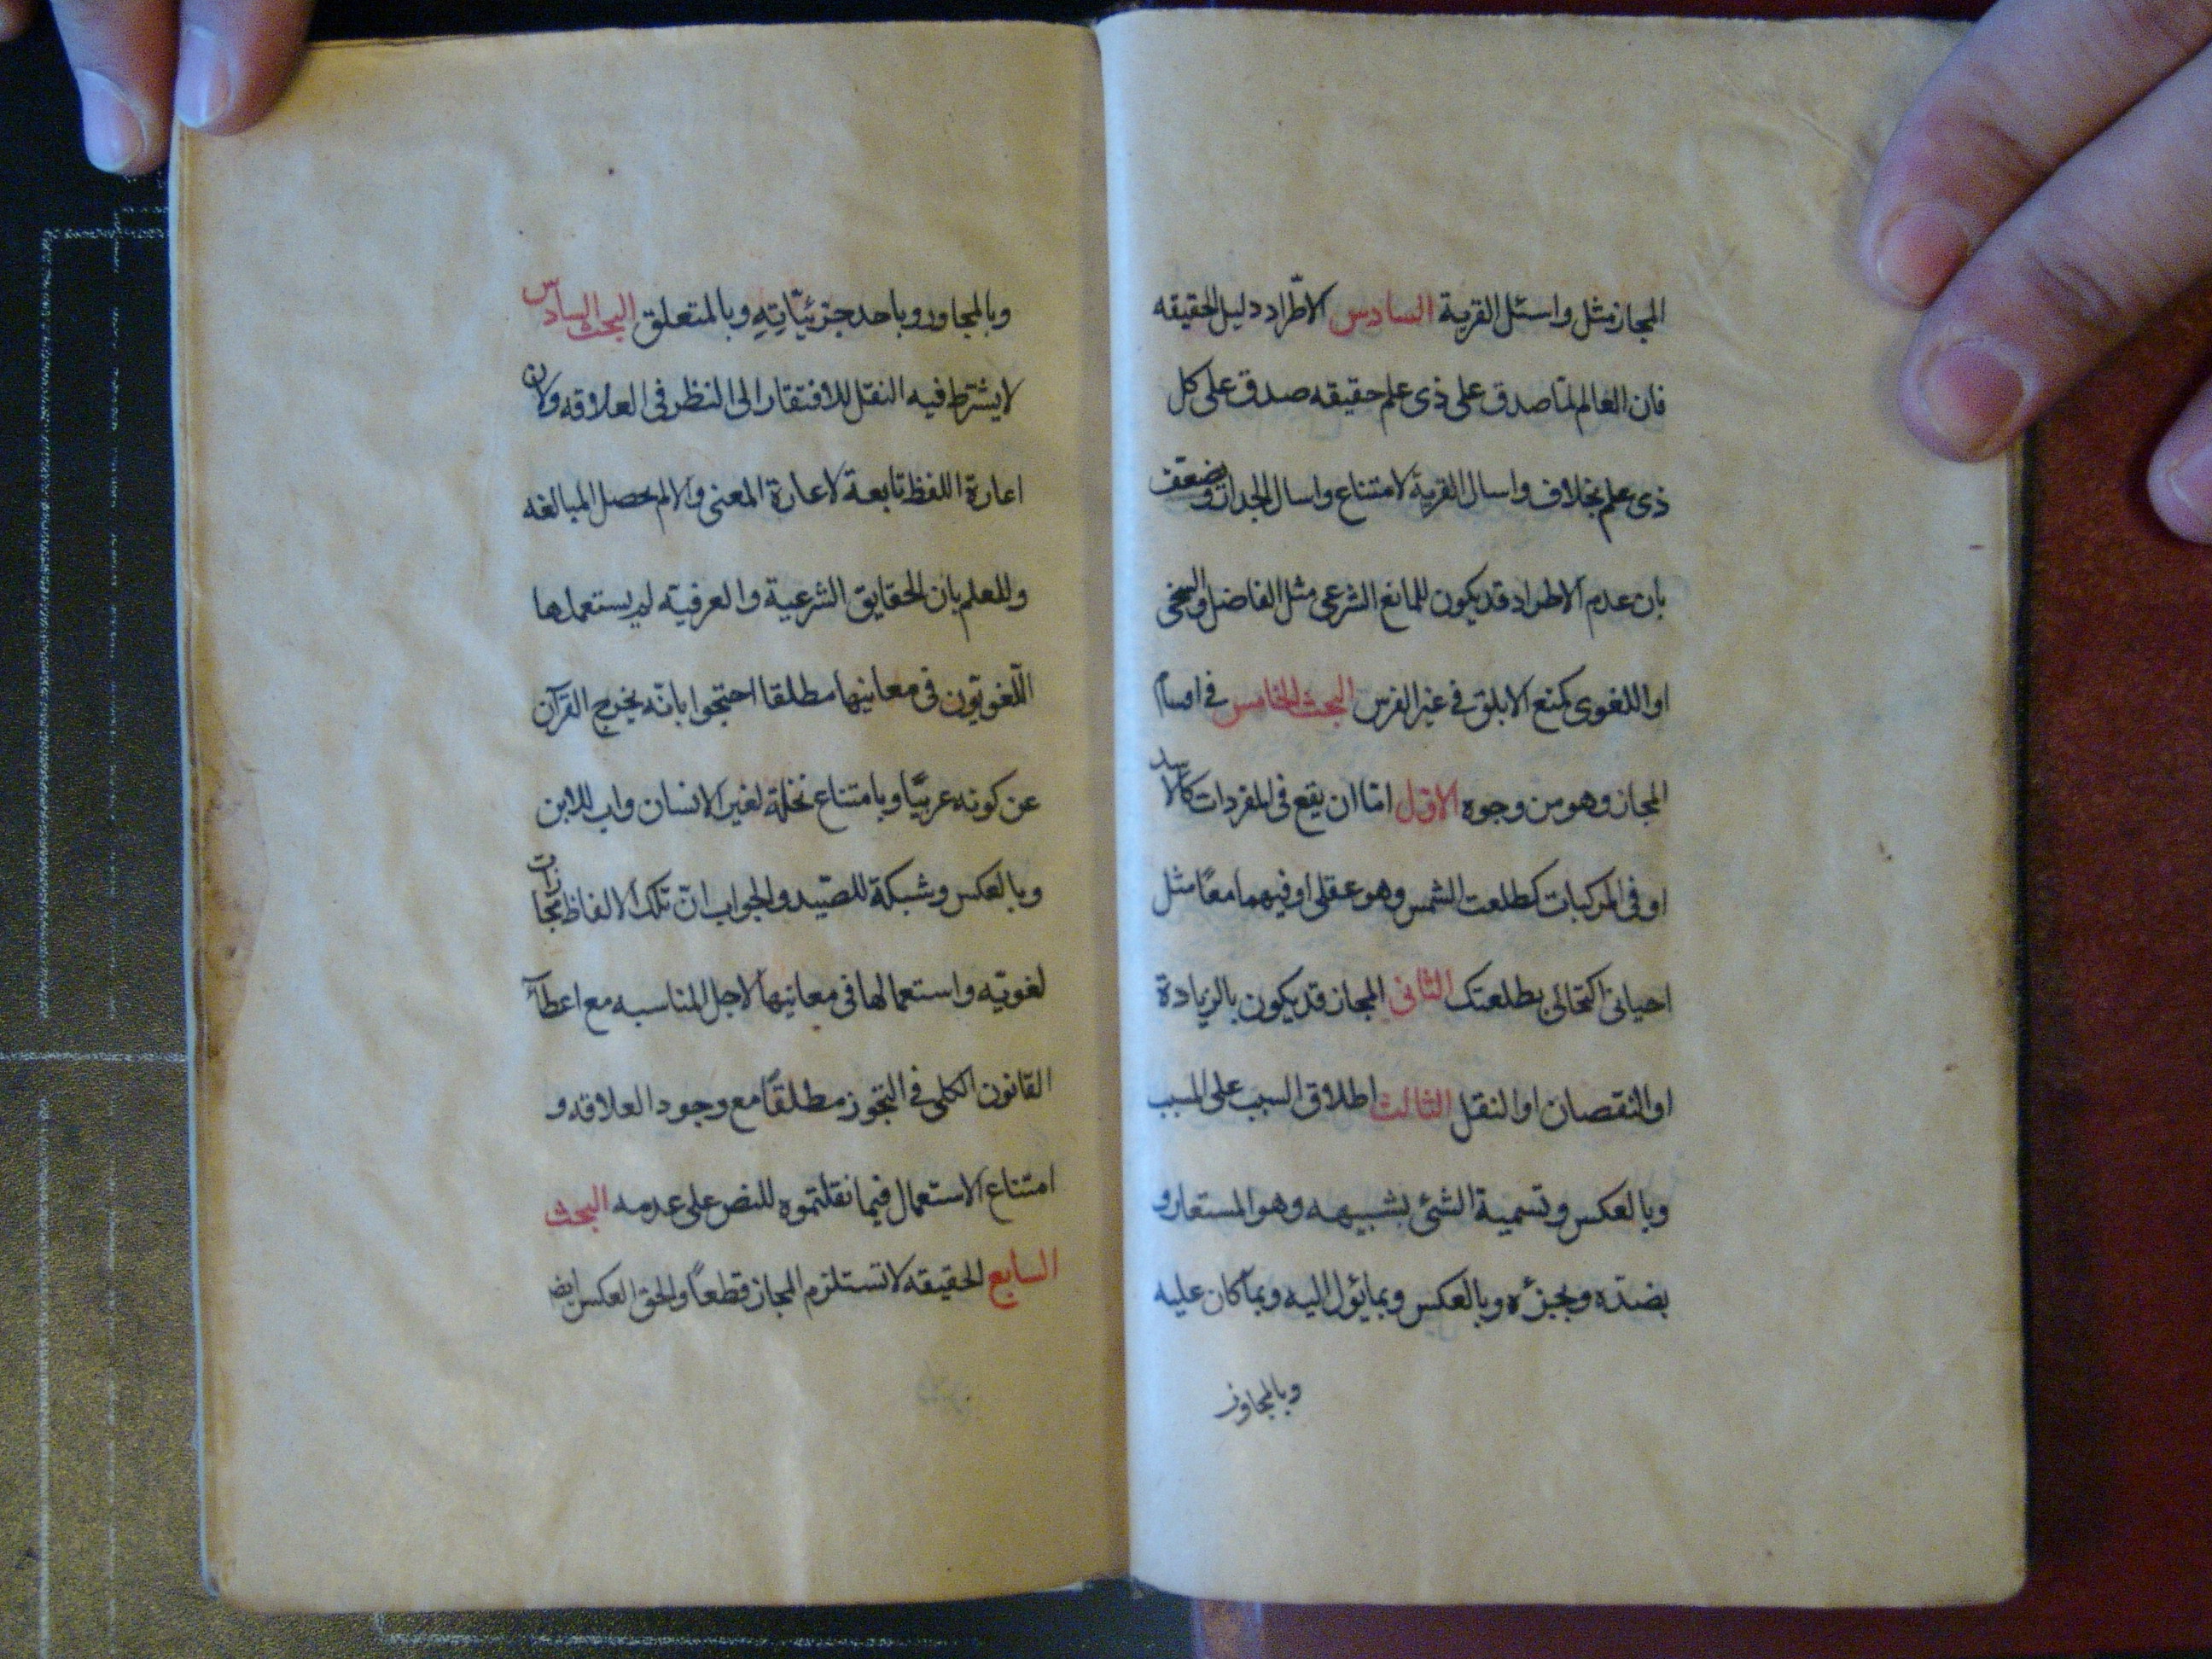 المجاز مثل واسئل القرية السادس الاطّراد دليل الحقيقه
فان العالم لمّا صدق على ذى علم حقيقه صدق على كل
ذى علم بخلاف واسال القرية لامتناع واسال الجدار وضعف
بان عدم الاطراد قد يكون للمانع الشرعى مثل الفاضل والسخى
او اللغوى كمنع الابلق فى غير الفرس البحث الخامس فى اقسام
المجاز وهو من وجوه الاوّل امّا ان يقع فى المفردات كالاسد
او فى المركبات كطلعت الشمس وهو عقلى او فيهما معًا مثل
احيانى اكتحالى بطلعتك الثانى المجاز قد يكون بالزيادة
او النقصان او النقل الثالث اطلاق السبب على المسبب
وبالعكس وتسمية الشئ بشبيهه وهو المستعار و
بضدّه وبجزئه وبالعكس وبما يئول اليه وبما كان عليه
وبالمجاور
وبالمجاور وباحد جزئيّاتِهِ وبالمتعلق البحث السادس
لا يشترط فيه النقل للافتقار الى النظر فى العلاقه ولان
اعارة اللفظ تابعة لاعارة المعنى والا لم يحصل المبالغه
وللعلم بان الحقايق الشرعية والعرفيّه لم يستعملها
اللّغويّون فى معانيها مطلقا احتجوا بانّه يخرج القرآن
عن كونه عربيًّا وبامتناع نخلة لغير الانسان واب للابن
وبالعكس وشبكة للصّيد والجواب انّ تلك الالفاظ مجازات
لغويّه واستعمالها فى معانيها لاجل المناسبه مع اعطآء
القانون الكلى فى التجوز مطلقًا مع وجود العلاقه و
امتناع الاستعمال فيما نقلتموه للنص على عدمه البحث
السابع الحقيقه لا تستلزم المجاز قطعًا والحق العكس ايض